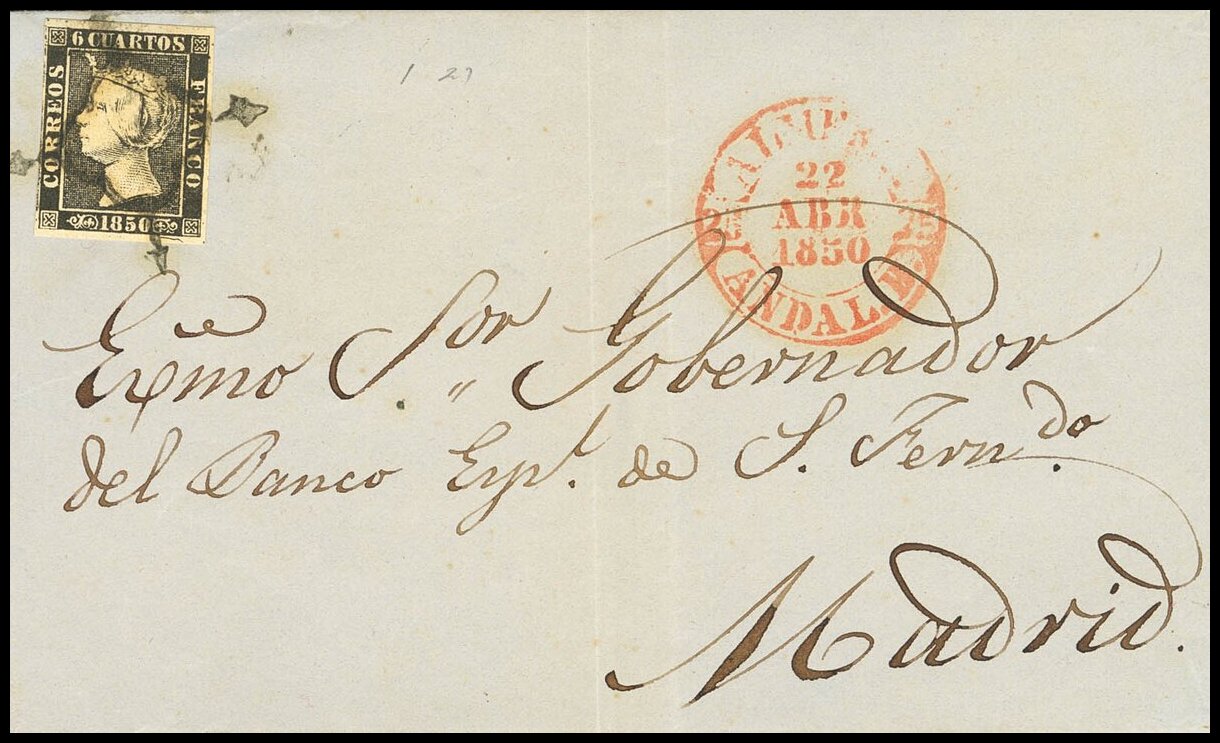 6 CUARTOS
CORREOS
FRANCO
1850
1 27
22
ABR
1850
ANDAL. B
Exmo Sor Gobernador
del Banco Espl. de S. Ferndo.
Madrid.